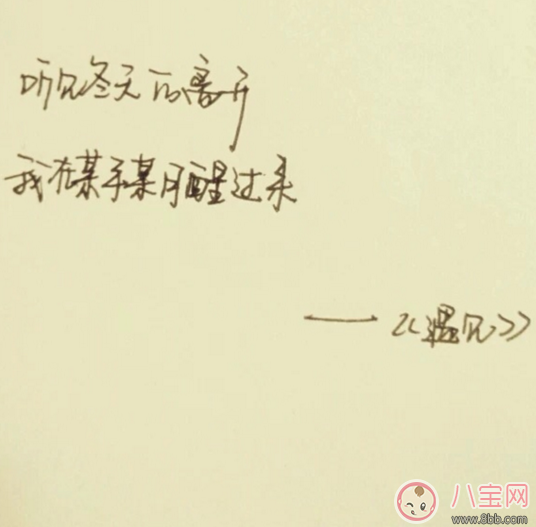 听见冬天的离开
我在某年某月醒过来
——《遇见》
八宝网
www.8bb.com